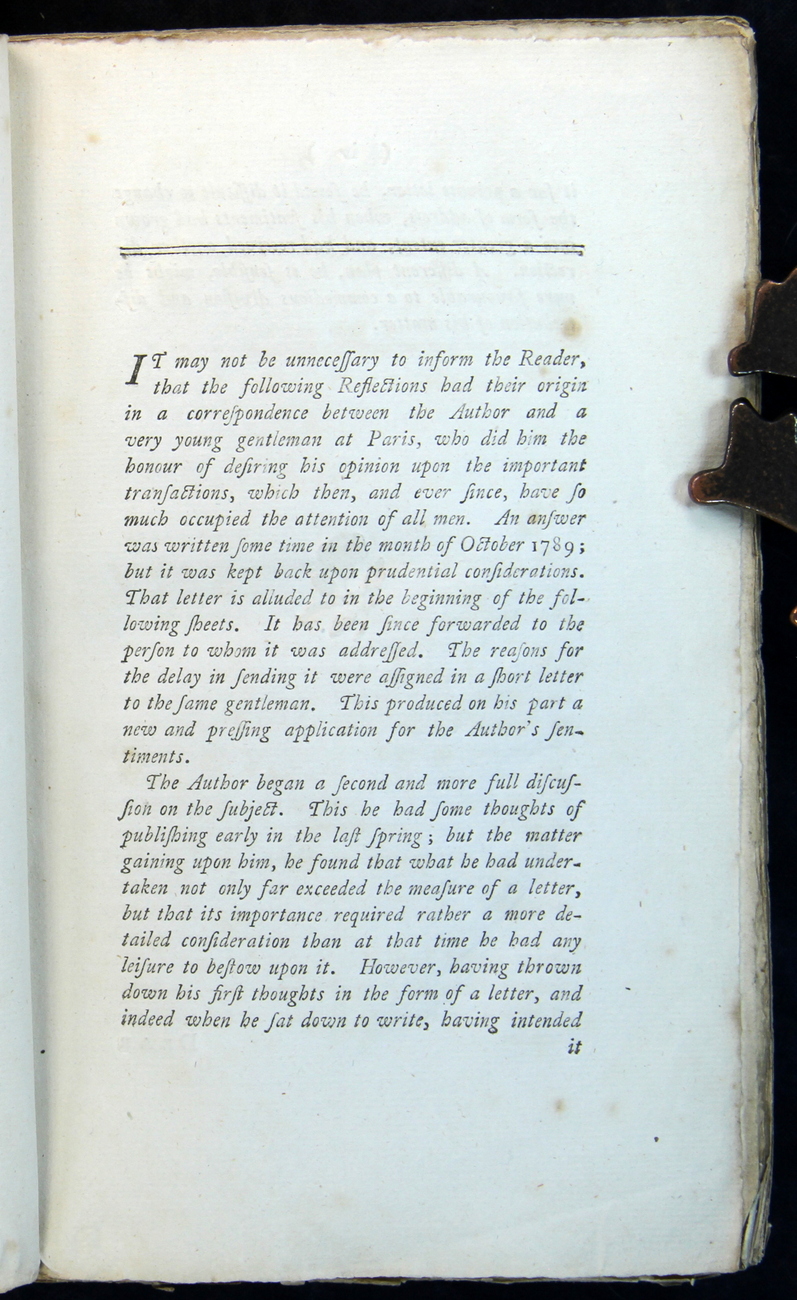 IT may not be unneceſſary to inform the Reader,
that the following Reflections had their origin
in a correſpondence between the Author and a
very young gentleman at Paris, who did him the
honour of deſiring his opinion upon the important
tranſactions, which then, and ever ſince, have ſo
much occupied the attention of all men. An anſwer
was written ſome time in the month of October 1789;
but it was kept back upon prudential conſiderations.
That letter is alluded to in the beginning of the fol-
lowing ſheets. It has been ſince forwarded to the
perſon to whom it was addreſſed. The reaſons for
the delay in ſending it were aſſigned in a ſhort letter
to the ſame gentleman. This produced on his part a
new and preſſing application for the Author's ſen-
timents.
The Author began a ſecond and more full diſcuſ-
ſion on the ſubject. This he had ſome thoughts of
publiſhing early in the laſt ſpring; but the matter
gaining upon him, he found that what he had under-
taken not only far exceeded the meaſure of a letter,
but that its importance required rather a more de-
tailed conſideration than at that time he had any
leiſure to beſtow upon it. However, having thrown
down his firſt thoughts in the form of a letter, and
indeed when he ſat down to write, having intended
it